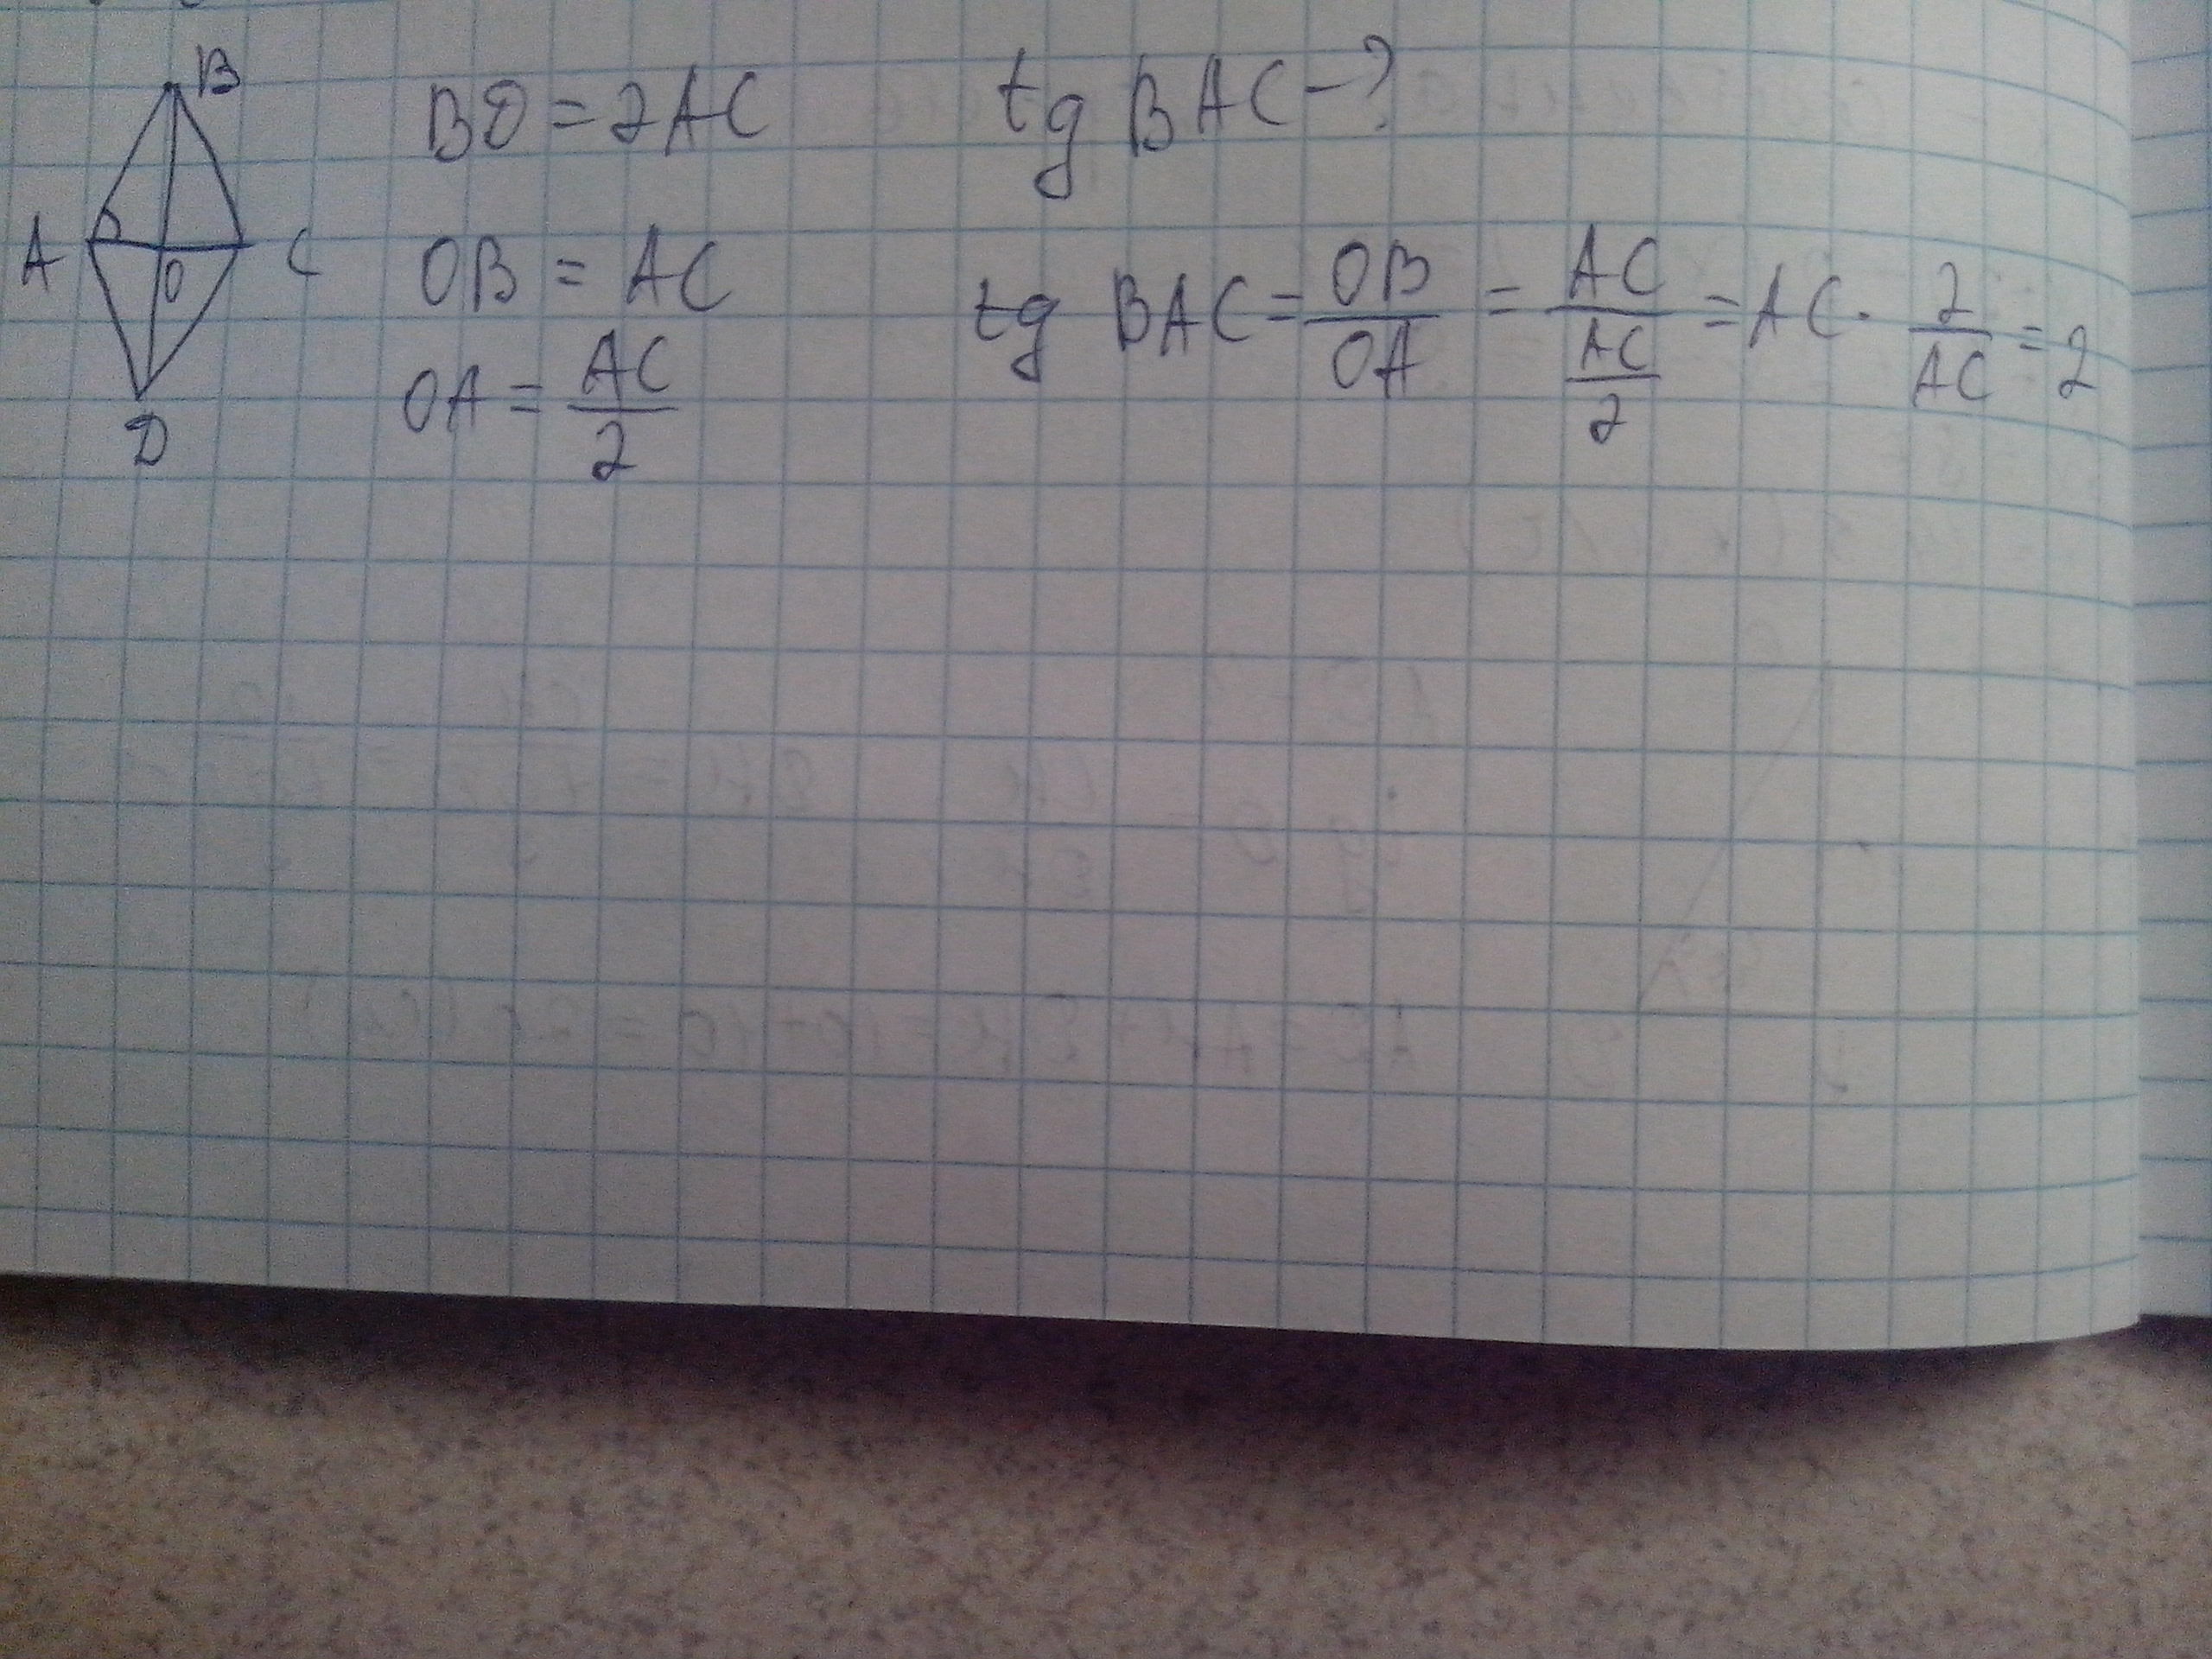 B
A
O
C
D
BD = 2AC
tg BAC - ?
OB = AC
OA = AC/2
tg BAC = OB/OA = AC/(AC/2) = AC · 2/AC = 2